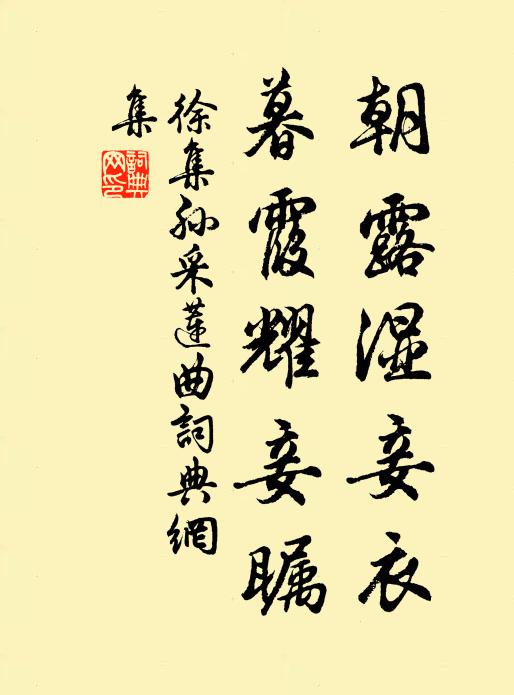 朝露湿妾衣
暮霞耀妾瞩
徐集孙采莲曲詞典網
集
詞典网印